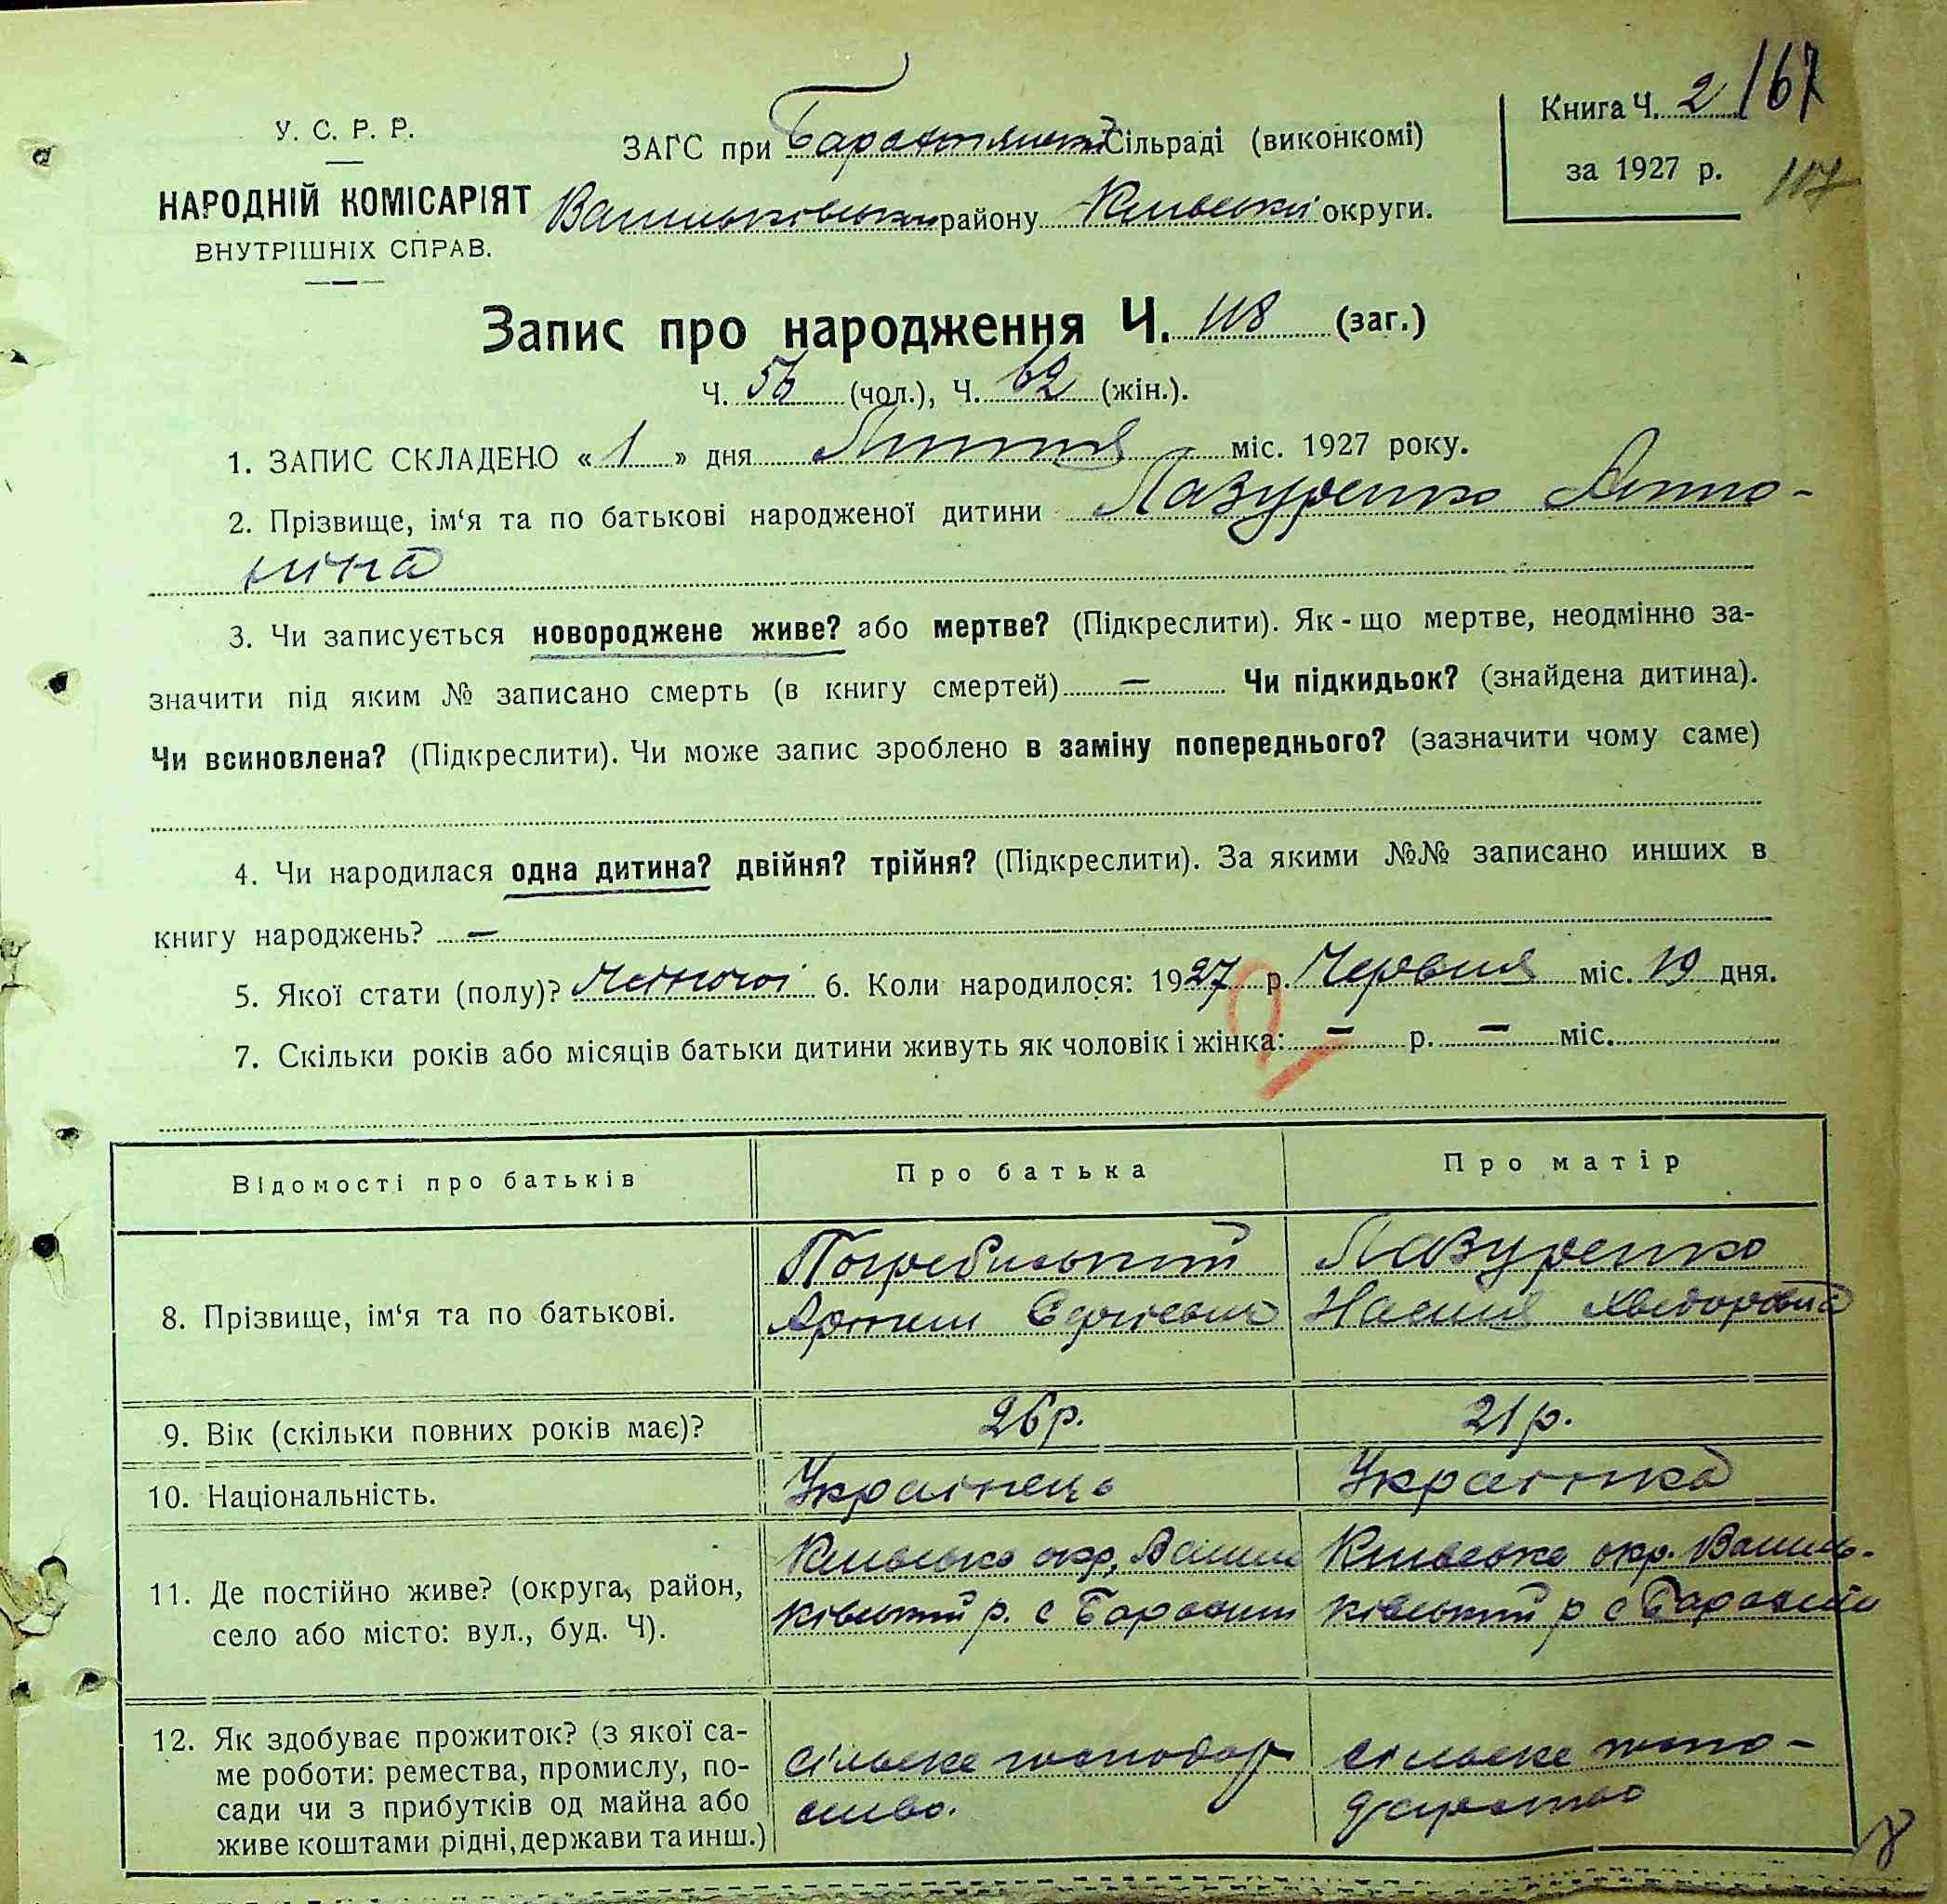 167
Книга Ч. 2
за 1927 р.
117
У. С. Р. Р.
НАРОДНІЙ КОМІСАРІЯТ
ВНУТРІШНІХ СПРАВ.
ЗАГС при Сільраді (виконкомі)
Васильківськ району Київської округи.
Запис про народження Ч. 118 (заг.)
Ч. 56 (чол.), Ч. 62 (жін.).
1. ЗАПИС СКЛАДЕНО « 1 » дня Липня міс. 1927 року.
2. Прізвище, ім‘я та по батькові народженої дитини Лазуренко Анто-
ніна
3. Чи записується новороджене живе? або мертве? (Підкреслити). Як - що мертве, неодмінно за-
значити під яким № записано смерть (в книгу смертей) — Чи підкидьок? (знайдена дитина).
Чи всиновлена? (Підкреслити). Чи може запис зроблено в заміну попереднього? (зазначити чому саме)
4. Чи народилася одна дитина? двійня? трійня? (Підкреслити). За якими №№ записано инших в
книгу народжень? —
5. Якої стати (полу)? Жіночої 6. Коли народилося: 1927 р. Червня міс. 19 дня.
7. Скільки років або місяців батьки дитини живуть як чоловік і жінка: — р. — міс.
Відомості про батьків Про батька Про матір
8. Прізвище, ім‘я та по батькові.
Погребиський Лазуренко
Сергієвич Насția Хведоровна
9. Вік (скільки повних років має)? 26 р. 21 р.
10. Національність. Українець Українка
11. Де постійно живе? (округа, район,
село або місто: вул., буд. Ч).
Київська окр, Васил Київська окр. Василь-
ківський р. с ківський р с
12. Як здобуває прожиток? (з якої са-
ме роботи: ремества, промислу, по-
сади чи з прибутків од майна або
живе коштами рідні, держави та инш.)
сільске господар сільске госпо-
ство. дарство